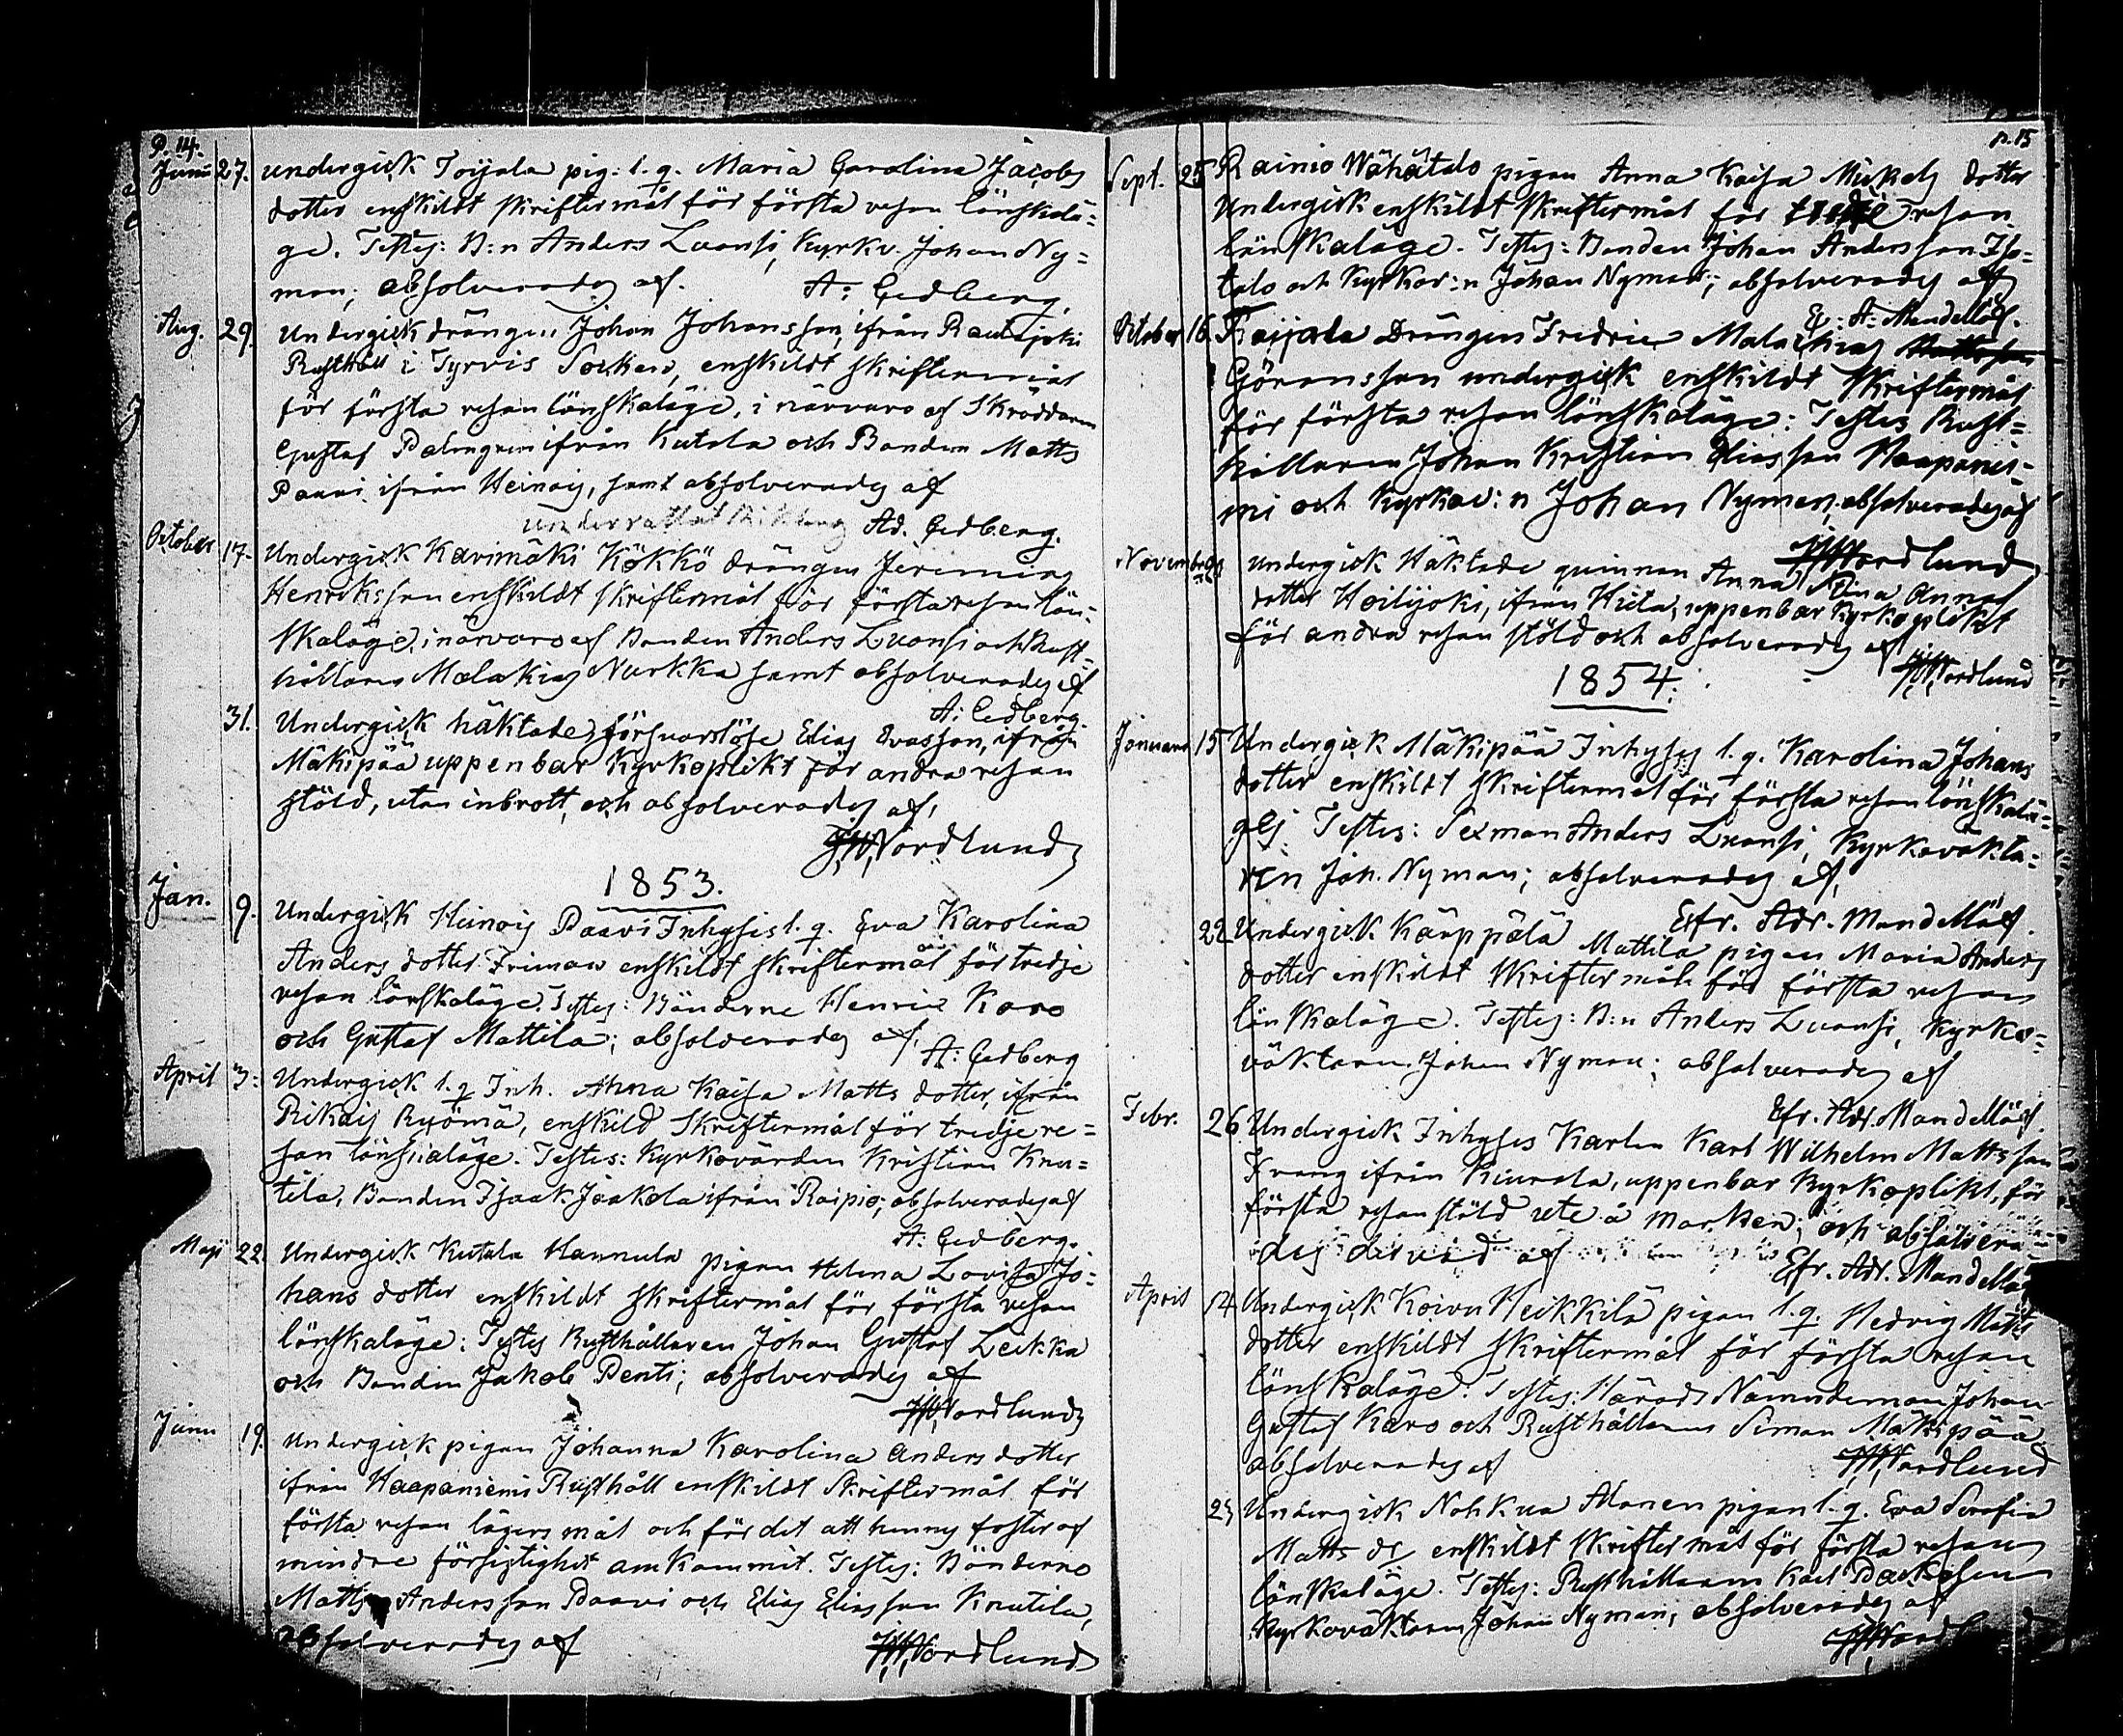 P. 14.
Junii 27. undergick Toijala pig: l. q. Maria Carolina Jacobs
dotter enskildt skriftermål för första resan lönskalä=
ge. Testes: B:n Anders Luonsi, Kyrkv. Johan Ny=
man; absolverades af.
A: Cedberg.
Aug. 29. Undergick drängen Johan Johansson, ifrån Rautajoki
Rusthåll i Tyrvis Socken, enskildt skriftermål
för första resan lönskaläge, i närvaro af Skräddaren
Gustaf Palmgren ifrån Kutala och Bonden Matts
Paavi ifrån Heinois, samt absolverades af
Ad. Cedberg.
October 17. Undergick Karimäki Kökkö drängen Jeremias
Henriksson enskildt skriftermål för första resan lön=
skaläge, i närvaro af Bonden Anders Luonsi och Rust=
hållaren Malakias Nurkka samt absolverades af
A: Cedberg.
31. Undergick häktade, försvarslöse Elias Evasson, ifrån
Mäkipää uppenbar Kyrkoplikt för andra resan
stöld, utan inbrott, och absolverades af,
JW Nordlund
1853.
Jan. 9. Undergick Heinois Paavi Inhyses l. q. Eva Karolina
Anders dotter Friman enskildt skriftermål för tredje
resan lönskaläge. Testes: Bönderne Henric Karo
och Gustaf Mattila; absolverades af.
A: Cedberg
April 3. Undergick l. q. Inh. Anna Kaisa Matts dotter, ifrån
Rikais Ryömä, enskild Skriftermål för tredje re=
san lönskaläge. Testes: Kyrkovärden Kristian Knu=
tila, Bonden Isaak Jaakola ifrån Raipio; absolverades af
A: Cedberg.
Maji 22 Undergick Kutala Hannula pigan Helena Lovisa Jo=
hans dotter enskildt skriftermål för första resan
lönskaläge: Testes Rusthållaren Johan Gustaf Leikka
och Bonden Jakob Penti; absolverades af
JW Nordlund
Junii 19. Undergick pigan Johanna Karolina Anders dotter
ifrån Haapaniemi Rusthåll enskildt Skriftermål för
första resan lägersmål och för det att hennes foster af
mindre försigtighet omkommit. Testes: Bönderne
Matts Andersson Paavi och Elias Eliasson Knutila,
absolverades af JW Nordlund
p. 15
Sept. 25 Rainio Wähätalo pigan Anna Kaisa Mickels dotter
Undergick enskildt skriftermål för tredje resan
lönskaläge. Testes: Bonden Johan Andersson Iso=
talo och Kyrkov:n Johan Nyman; absolverades af
E: A: Mandellöf.
October 16. Toijala Drängen Fredric Malachias
Göransson undergick enskildt Skriftermål
för första resan lönskaläge: Testes Rust=
hållaren Johan Kristian Eliasson Haapanie=
mi och Kyrkov:n Johan Nyman, absolverades af
JW Nordlund
November undergick Häktade quinnan Anna Stina Annas
dotter Hoilijoki, ifrån Hiita, uppenbar Kyrkoplikt
för andra resan stöld och absolverades af
JW Nordlund
1854.
Januari 15 Undergick Mäkipää Inhyses l. q. Karolina Johans
dotter enskildt Skriftermål för första resan lönskalä=
ge; Testes: Sexman Anders Luonsi, Kyrkovakta=
ren Joh. Nyman; absolverades af,
Efr. Adr. Mandellöf.
22 Undergick Kärppälä Mattila pigan Maria Anders
dotter enskildt Skriftermål för första resan
lönskaläge. Testes: B:n Anders Luonsi, Kyrko=
väktaren Johan Nyman; absolverades af
Efr. Adr. Mandellöf.
Febr. 26 Undergick Inhyses Karlen Karl Wilhelm Mattsson
Krang ifrån Kiurala, uppenbar Kyrkoplikt, för
första resan stöld ute å marken; och absolvera=
des dervid af
Efr. Adr. Mandellöf
April 14 Undergick Koivu Heikkilä pigan l. q. Hedvig Matts
dotter enskildt skriftermål för första resan
lönskaläge. Testes: Härads Nämndeman Johan
Gustaf Karo och Rusthållaren Simon Mäkipää
absolverades af JW Nordlund
23 Undergick Nohkua Alanen pigan l. q. Eva Serafia
Matts dr enskildt skriftermål för första resan
lönskaläge. Testes: Rusthållaren Karl
Kyrkoväktaren Johan Nyman; absolverades af
JW Nordlund